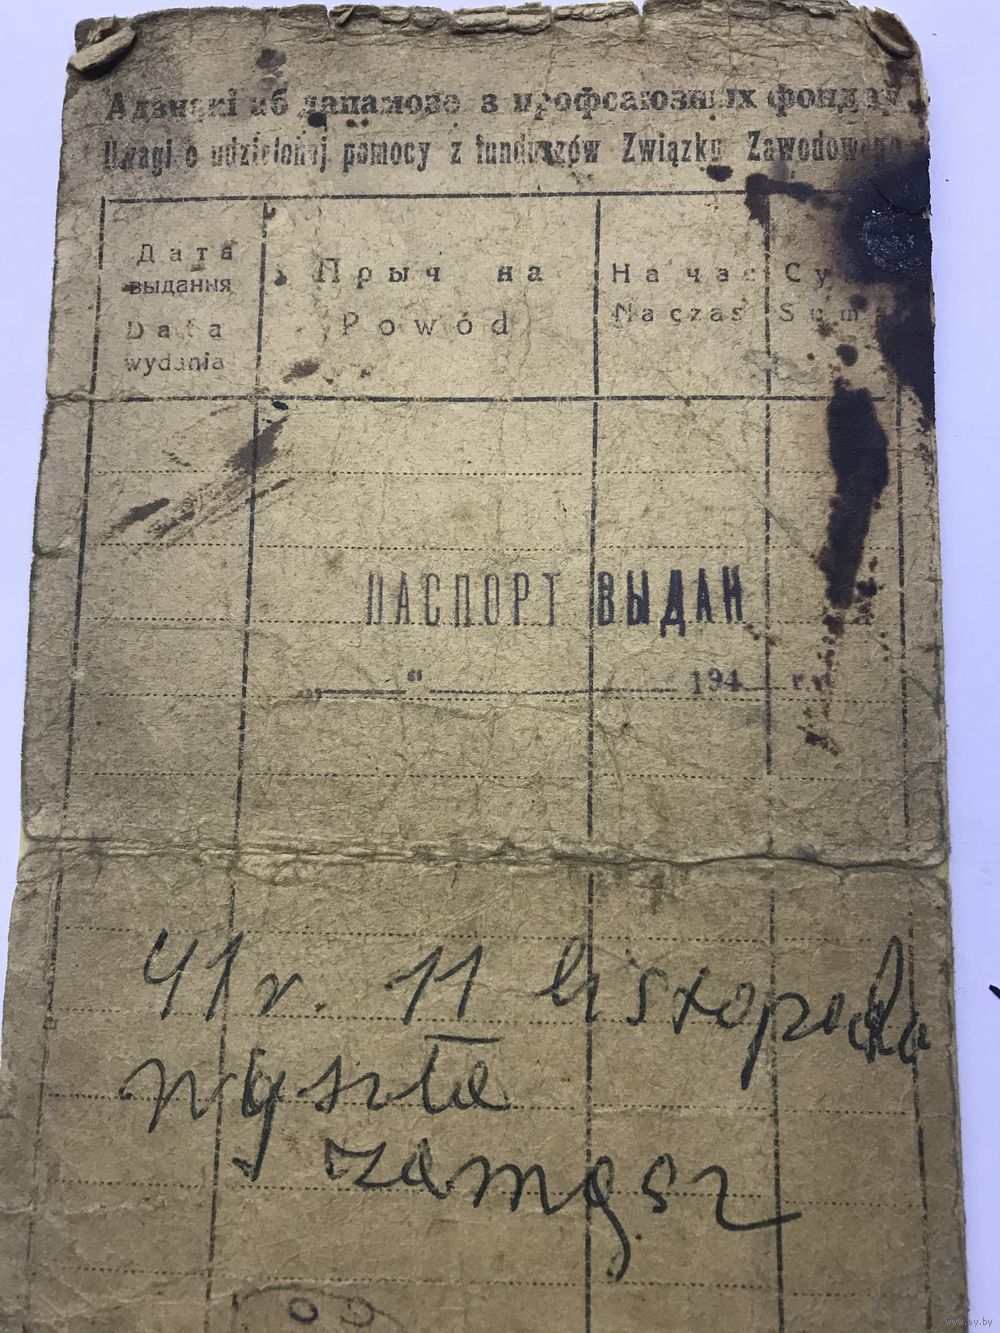 Адзнакі аб дапамозе з профсаюзных фондаў
Uwagi o udzielonej pomocy z funduszów Związku Zawodowego
Дата
выдання
Data
wydania
Прыч на
Powód
На час
Na czas
Су
Sum
ПАСПОРТ ВЫДАН
„ “ 194 г.
41 r. 11 listopada
wyszła
zamąsz
www.ay.by